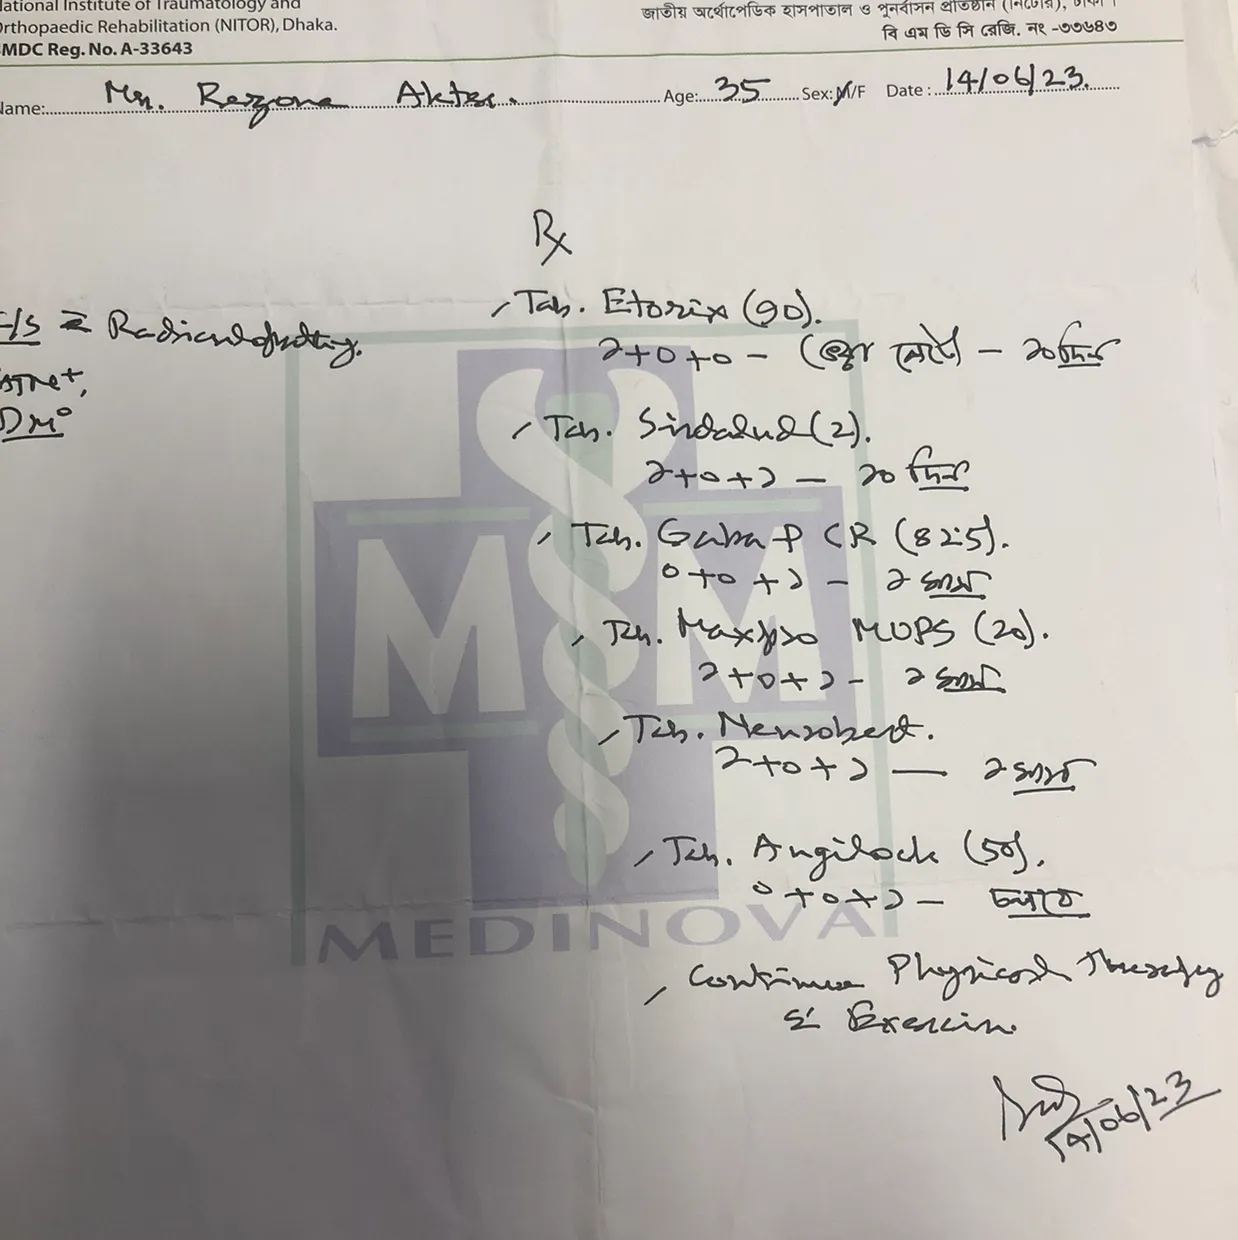 National Institute of Traumatology and
Orthopaedic Rehabilitation (NITOR), Dhaka.
BMDC Reg. No. A-33643
জাতীয় অর্থোপেডিক হাসপাতাল ও পুনর্বাসন প্রতিষ্ঠান (নিটোর), ঢাকা।
বি এম ডি সি রেজি. নং -৩৩৬৪৩
Name: Mrs. Rezona Akter. Age: 35 Sex: M/F Date : 14/06/23.
Rx
Radiculopathy.
HTN+,
DM°
Tab. Etorix (90).
১+০+০ – ১০ দিন
Tab. Sirdalud (2).
১+০+১ – ১০ দিন
Tab. Gaba P CR (82.5).
০+০+১ – ১ মাস
Tab. Maxpro MUPS (20).
১+০+১ – ১ মাস
Tab. Neurobest.
১+০+১ — ১ মাস
Tab. Angilock (50).
০+০+১ – চলবে
Continue Physical Therapy
& Exercise.
14/06/23
MM
MEDINOVA